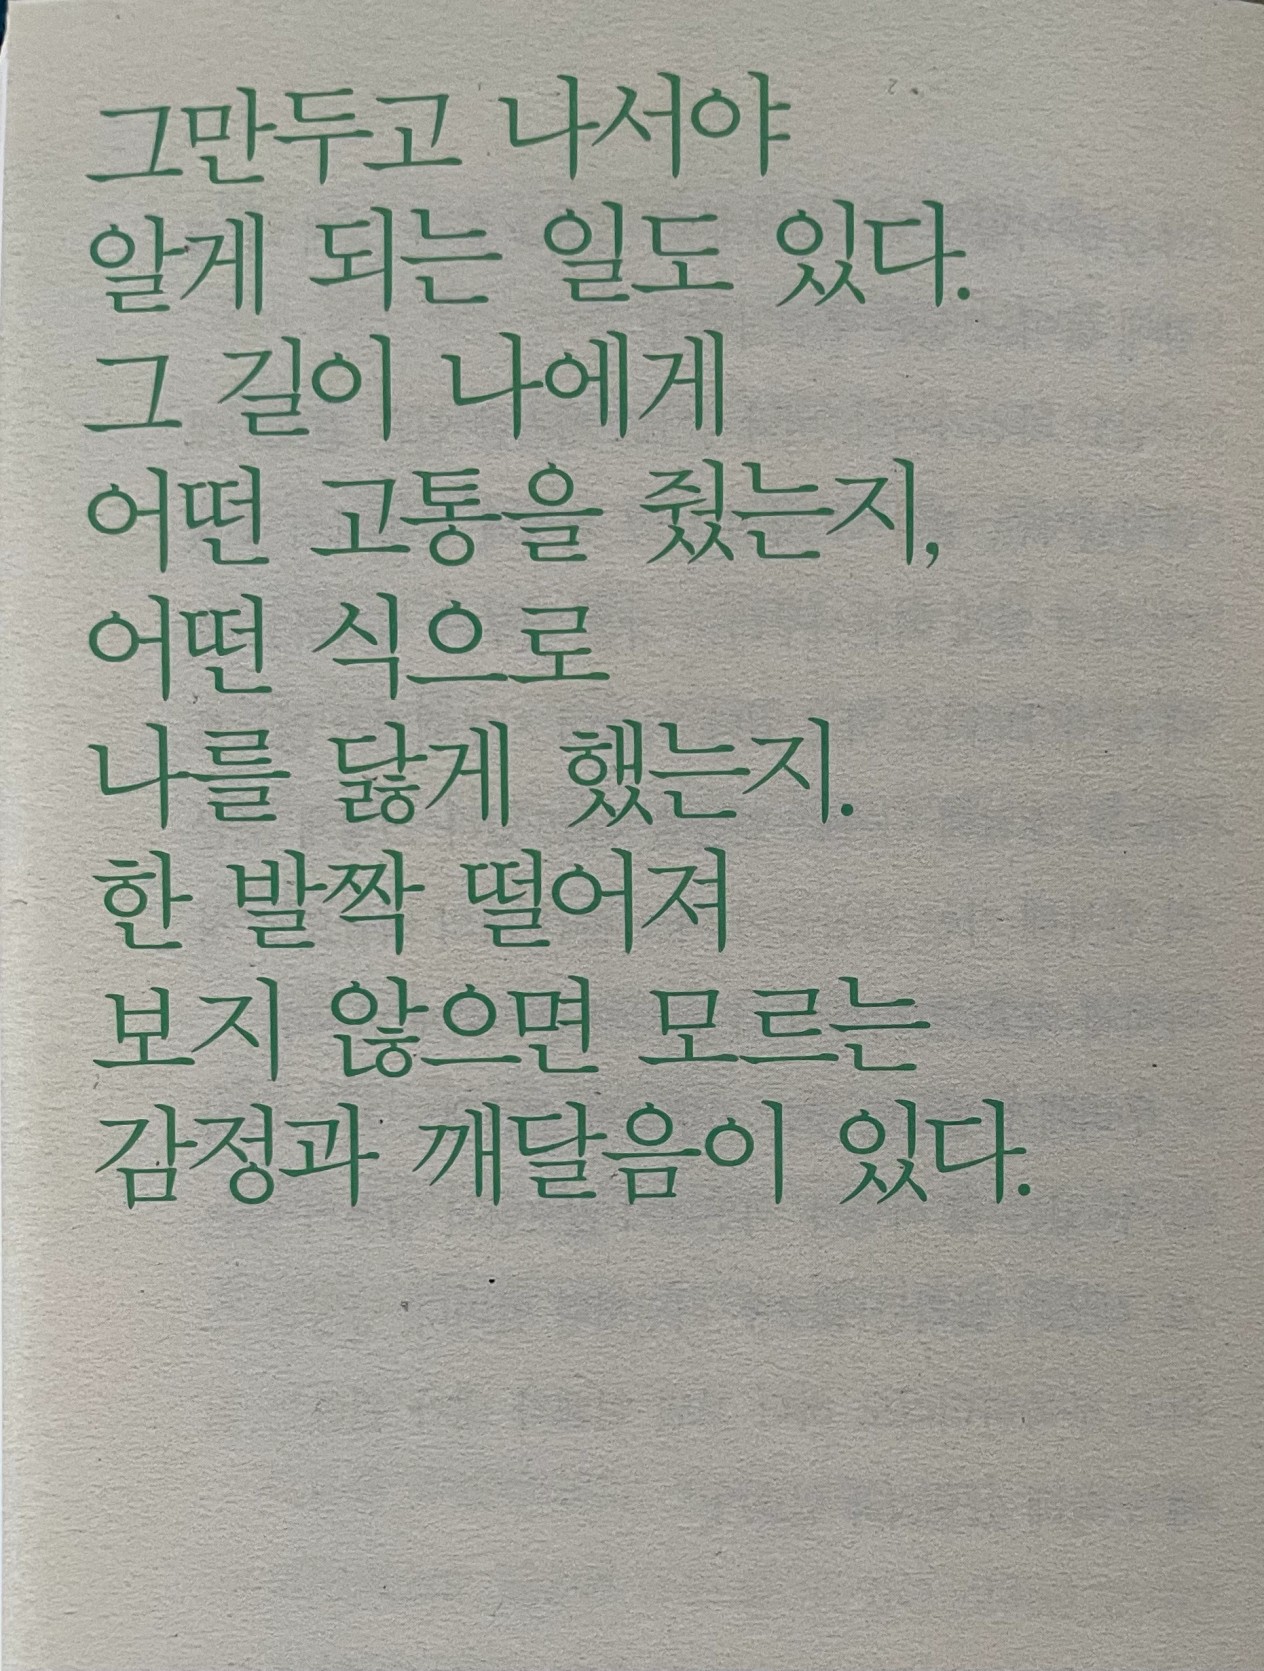 그만두고 나서야
알게 되는 일도 있다.
그 길이 나에게
어떤 고통을 줬는지,
어떤 식으로
나를 닳게 했는지.
한 발짝 떨어져
보지 않으면 모르는
감정과 깨달음이 있다.